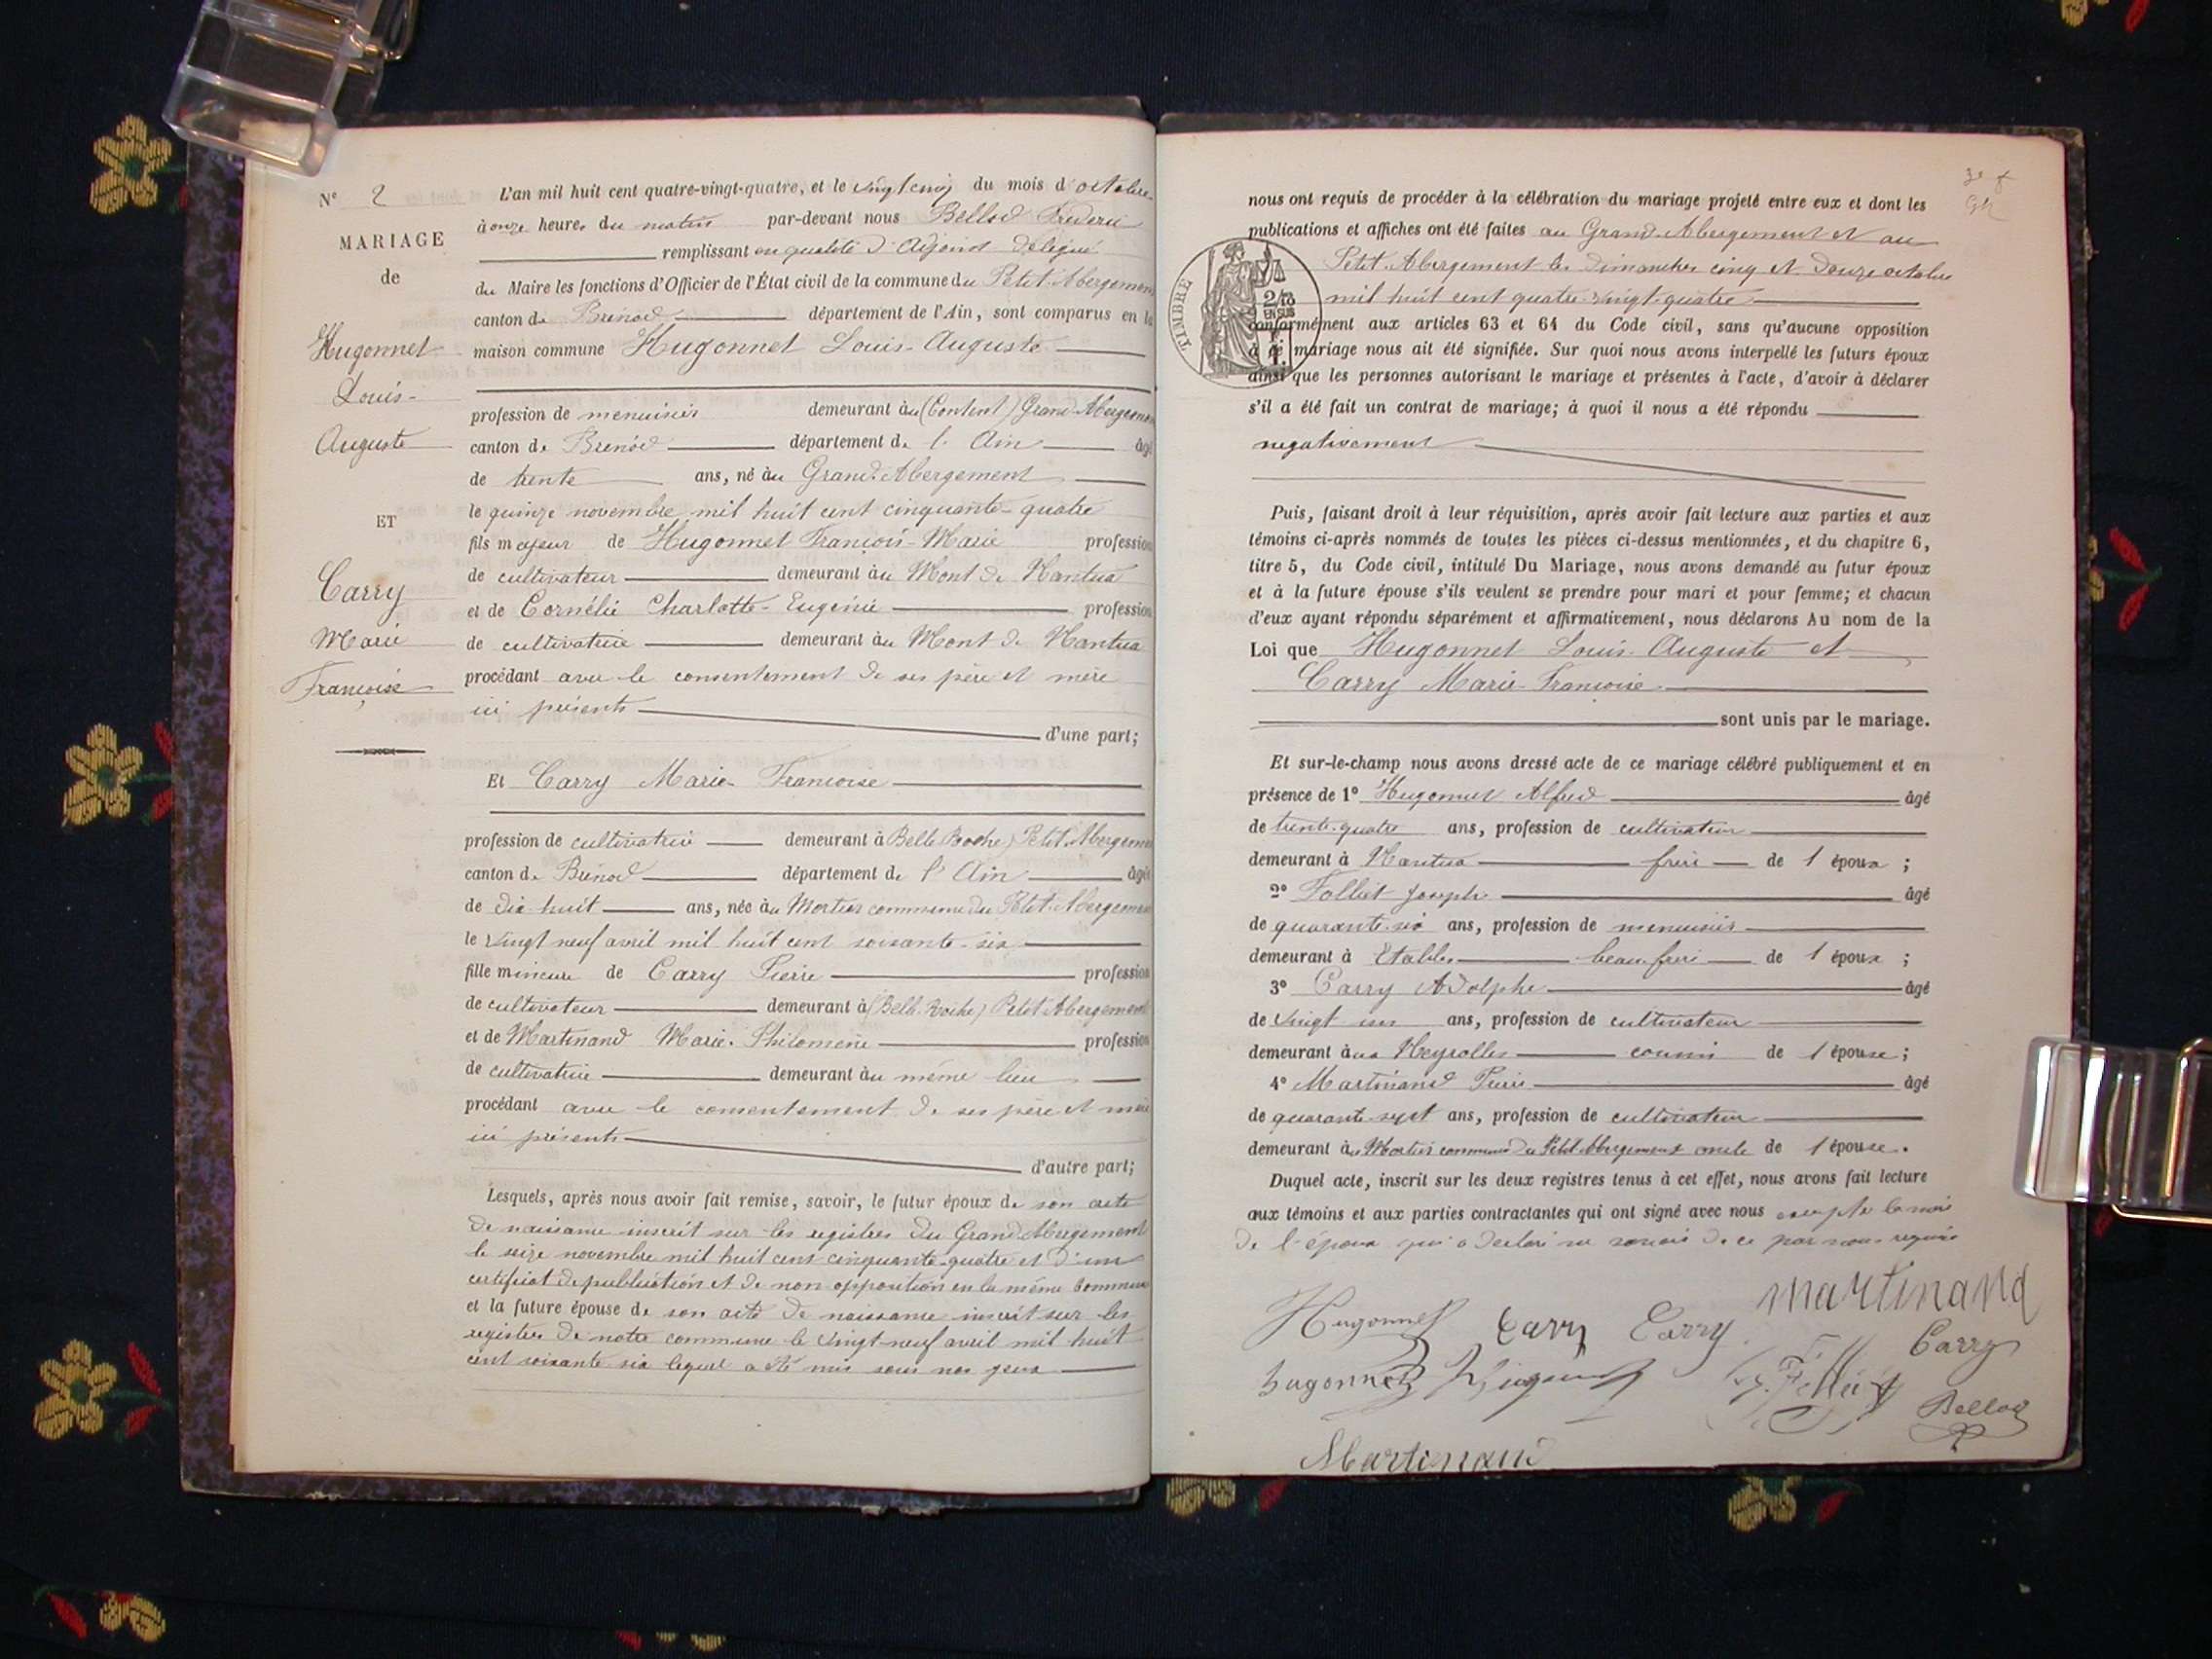 N° 2
MARIAGE
de
Hugonnet
Louis-
Auguste
ET
Carry
Marie
Françoise
L'an mil huit cent quatre-vingt-quatre, et le vingt cinq du mois d'octobre
à onze heures du matin par-devant nous Bellod Frederic
remplissant en qualité d'Adjoint délégué
du Maire les fonctions d'Officier de l'État civil de la commune du Petit-Abergement
canton de Brénod département de l'Ain, sont comparus en la
maison commune Hugonnet Louis-Auguste
profession de menuisier demeurant au Grand-Abergement
canton de Brénod département de l'Ain âgé
de trente ans, né au Grand-Abergement
le quinze novembre mil huit cent cinquante-quatre
fils majeur de Hugonnet François-Marie profession
de cultivateur demeurant au Mont de Nantua
et de Cornélie Charlotte-Eugénie profession
de cultivatrice demeurant au Mont de Nantua
procédant avec le consentement de ses père et mère
ici présents
d'une part;
Et Carry Marie-Françoise
profession de cultivatrice demeurant à Belle Roche) Petit-Abergement
canton de Brénod département de l'Ain âgée
de dix huit ans, née au Mortier commune du Petit-Abergement
le vingt neuf avril mil huit cent soixante-six
fille mineure de Carry Pierre profession
de cultivateur demeurant à (Belle-Roche) Petit-Abergement
et de Martinand Marie-Philomène profession
de cultivatrice demeurant au même lieu
procédant avec le consentement de ses père et mère
ici présents
d'autre part;
Lesquels, après nous avoir fait remise, savoir, le futur époux de son acte
de naissance inscrit sur les registres du Grand-Abergement
le seize novembre mil huit cent cinquante-quatre et d'un
certificat de publication et de non-opposition en la même commune
et la future épouse de son acte de naissance inscrit sur les
registres de notre commune le vingt-neuf avril mil huit
cent soixante-six lequel a été mis sous nos yeux
nous ont requis de procéder à la célébration du mariage projeté entre eux et dont les
publications et affiches ont été faites au Grand-Abergement et au
Petit-Abergement les Dimanches cinq et douze octobre
mil huit cent quatre-vingt-quatre
TIMBRE
2/10
EN SUS
conformément aux articles 63 et 64 du Code civil, sans qu'aucune opposition
à ce mariage nous ait été signifiée. Sur quoi nous avons interpellé les futurs époux
ainsi que les personnes autorisant le mariage et présentes à l'acte, d'avoir à déclarer
s'il a été fait un contrat de mariage; à quoi il nous a été répondu
negativement
Puis, faisant droit à leur réquisition, après avoir fait lecture aux parties et aux
témoins ci-après nommés de toutes les pièces ci-dessus mentionnées, et du chapitre 6,
titre 5, du Code civil, intitulé Du Mariage, nous avons demandé au futur époux
et à la future épouse s'ils veulent se prendre pour mari et pour femme; et chacun
d'eux ayant répondu séparément et affirmativement, nous déclarons Au nom de la
Loi que Hugonnet Louis-Auguste et
Carry Marie-Françoise
sont unis par le mariage.
Et sur-le-champ nous avons dressé acte de ce mariage célébré publiquement et en
présence de 1° Hugonnet Alfred âgé
de trente-quatre ans, profession de cultivateur
demeurant à Nantua frère de l'époux ;
2° Folliet Joseph âgé
de quarante-six ans, profession de menuisier
demeurant à Etables beau-frère de l'époux ;
3° Carry Adolphe âgé
de vingt ans, profession de cultivateur
demeurant aux Neyrolles cousin de l'épouse ;
4° Martinand Pierre âgé
de quarante-sept ans, profession de cultivateur
demeurant au Mortier commune du Petit-Abergement oncle de l'épouse.
Duquel acte, inscrit sur les deux registres tenus à cet effet, nous avons fait lecture
aux témoins et aux parties contractantes qui ont signé avec nous excepté la mère
de l'époux qui a déclaré ne savoir de ce par nous requise
Hugonnet Carry Carry Martinand
hugonnet Hugonnet Folliet Carry
Bellod
Martinand